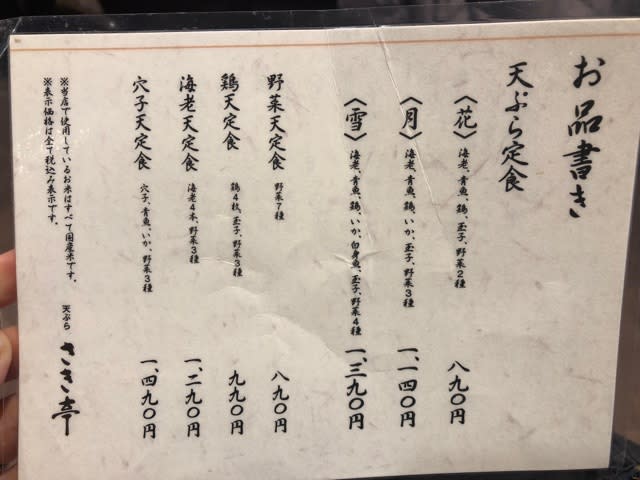 お品書き
天ぷら定食
〈花〉 海老、青魚、鶏、玉子、野菜2種 八九〇円
〈月〉 海老、青魚、鶏、いか、玉子、野菜3種 一、一四〇円
〈雪〉 海老、青魚、鶏、いか、白身魚、玉子、野菜4種 一、三九〇円
野菜天定食 野菜7種 八九〇円
鶏天定食 鶏4枚、玉子、野菜3種 九九〇円
海老天定食 海老4本、野菜3種 一、二九〇円
穴子天定食 穴子、青魚、いか、野菜3種 一、四九〇円
※当店で使用しているお米はすべて国産米です。
※表示価格は全て税込み表示です。
天ぷら さき亭